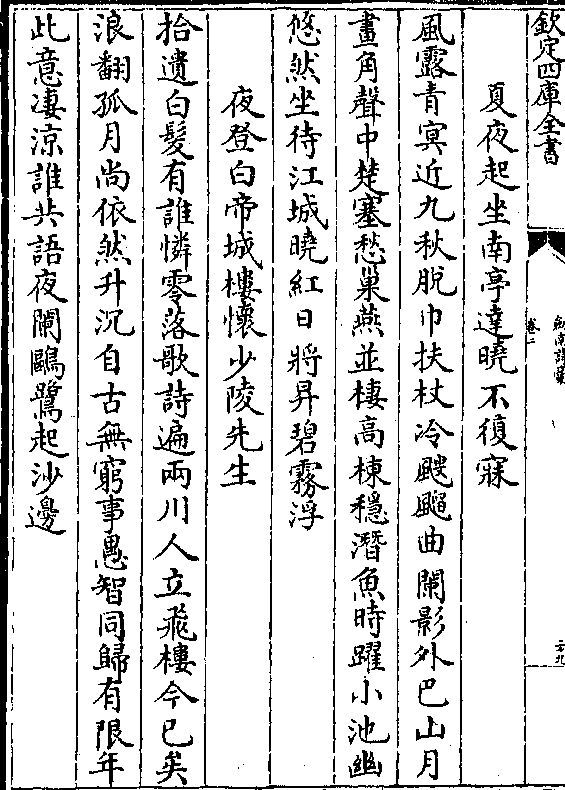 欽定四庫全書
劍南詩藁
卷二
二九
夏夜起坐南亭達曉不復寐
風露青冥近九秋脫巾扶杖冷颼飀曲闌影外巴山月
畫角聲中楚塞愁巢燕並棲高棟穩潛魚時躍小池幽
悠然坐待江城曉紅日將昇碧霧浮
夜登白帝城樓懷少陵先生
拾遺白髮有誰憐零落歌詩遍兩川人立飛樓今已矣
浪翻孤月尚依然升沉自古無窮事愚智同歸有限年
此意凄涼誰共語夜闌鷗鷺起沙邊